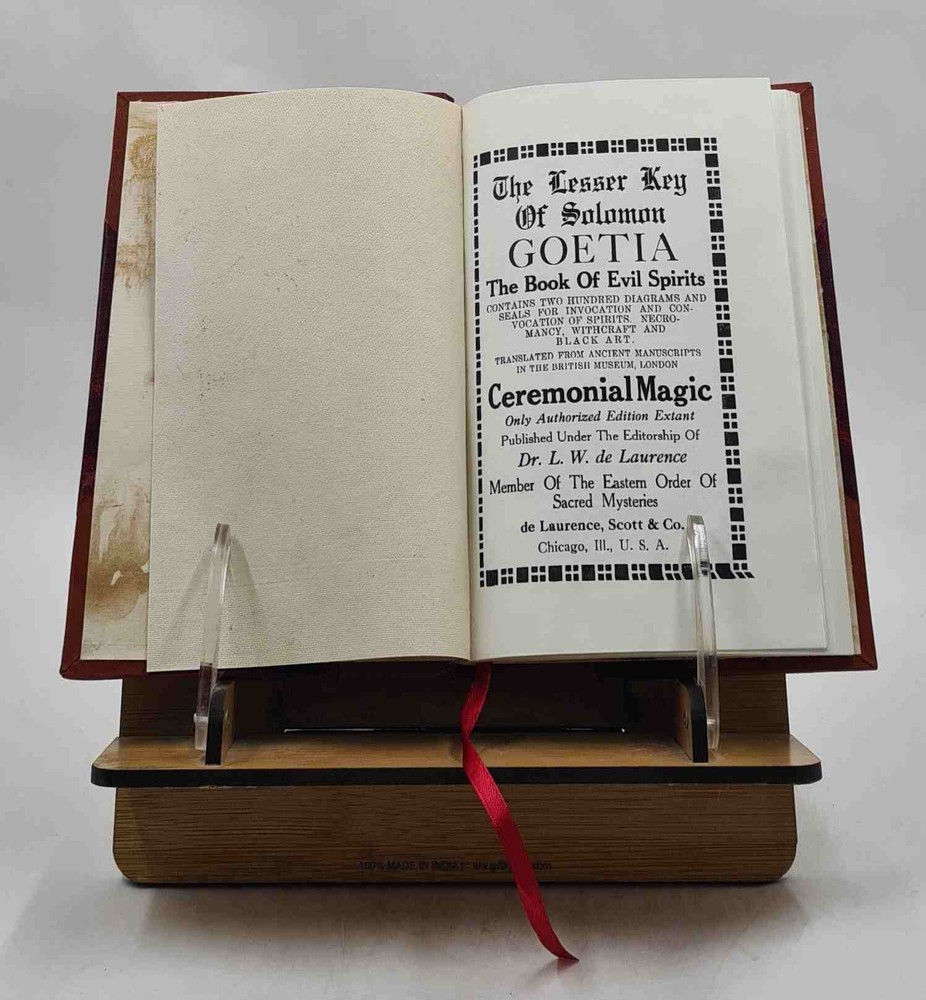 The Lesser Key
Of Solomon
GOETIA
The Book Of Evil Spirits
CONTAINS TWO HUNDRED DIAGRAMS AND
SEALS FOR INVOCATION AND CON-
VOCATION OF SPIRITS. NECRO-
MANCY, WITHCRAFT AND
BLACK ART.
TRANSLATED FROM ANCIENT MANUSCRIPTS
IN THE BRITISH MUSEUM, LONDON
Ceremonial Magic
Only Authorized Edition Extant
Published Under The Editorship Of
Dr. L. W. de Laurence
Member Of The Eastern Order Of
Sacred Mysteries
de Laurence, Scott & Co.
Chicago, Ill., U. S. A.
100% MADE IN INDIA